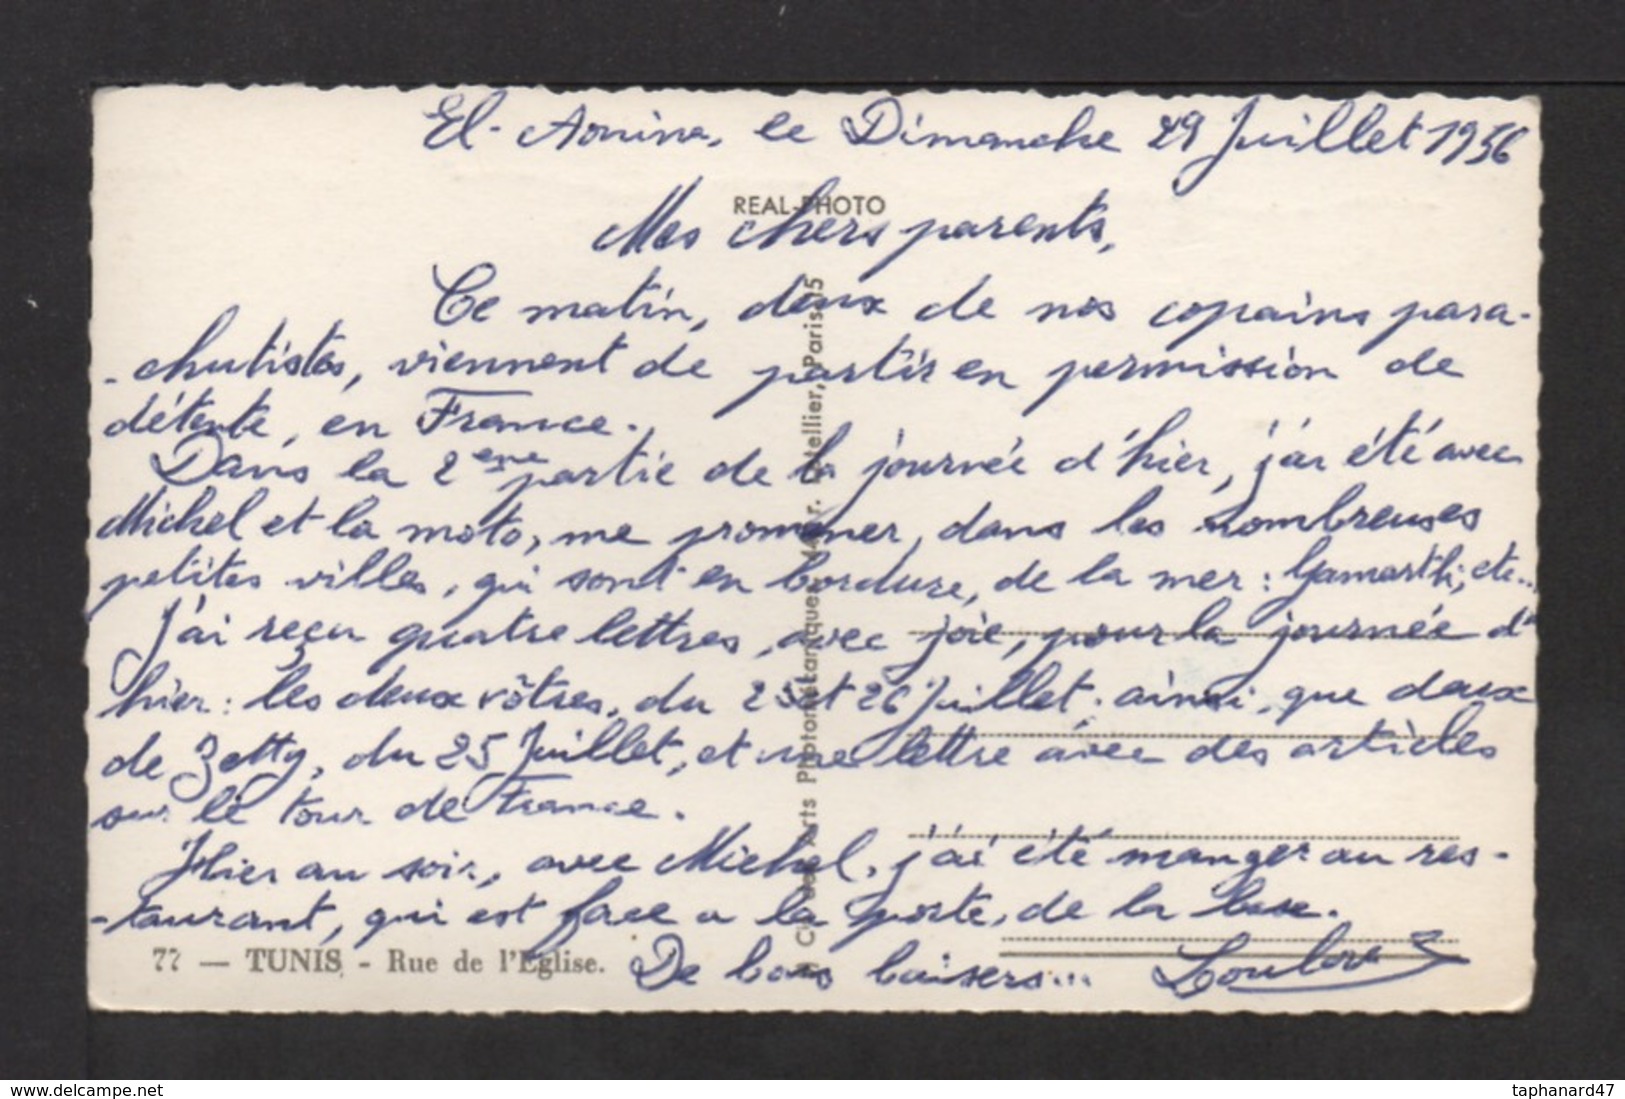 El-Aouina, le Dimanche 29 Juillet 1956
REAL-PHOTO
Mes chers parents,
Ce matin, deux de nos copains para-
-chutistes, viennent de partir en permission de
détente, en France.
Dans la 2ème partie de la journée d'hier, j'ai été avec
Michel et la moto, me promener, dans les nombreuses
petites villes, qui sont en bordure, de la mer : Gamarth, etc...
J'ai reçu quatre lettres, avec joie, pour la journée d'
hier : les deux vôtres, du et 26 Juillet. ainsi, que deux
de Zetty, du 25 Juillet, et une lettre avec des articles
sur le tour de France.
Hier au soir, avec Michel, j'ai été manger au res-
-taurant, qui est face a la porte, de la base.
77 — TUNIS - Rue de l'Eglise.
De bons baisers...
Arts Photomécaniques
tellier, Paris-15
www.delcampe.net
taphanard47